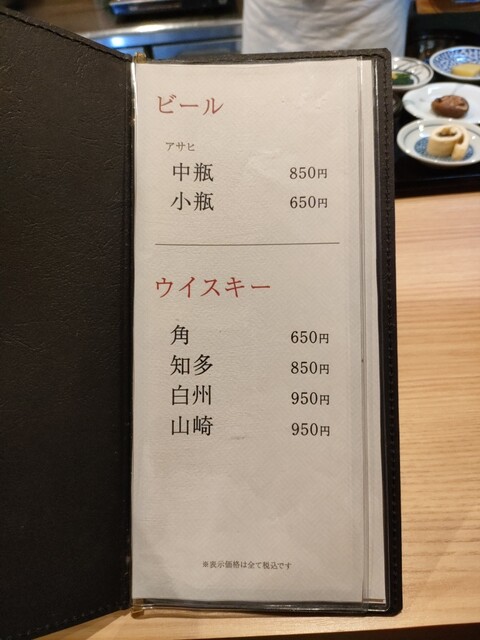 ビール
アサヒ
中瓶 850円
小瓶 650円
ウイスキー
角 650円
知多 850円
白州 950円
山崎 950円
※表示価格は全て税込です